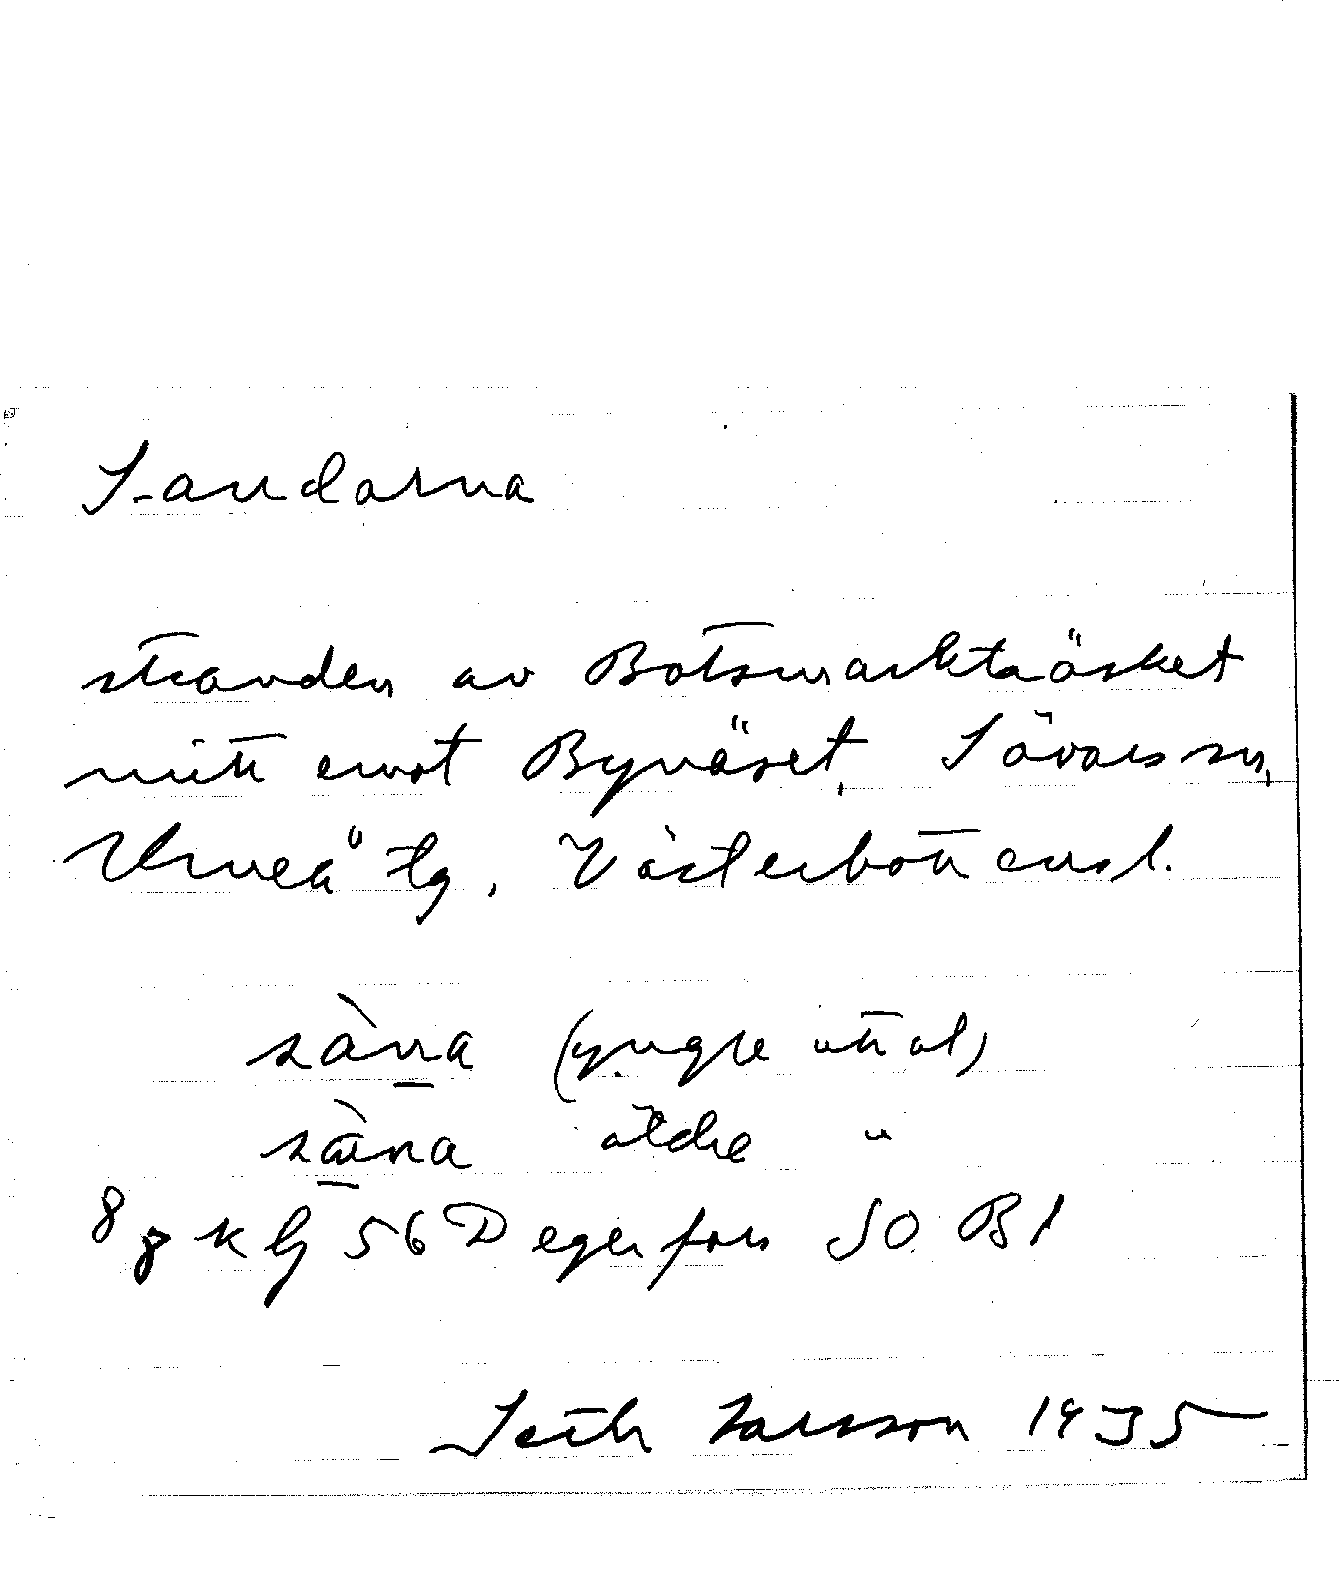 Sandarna
stranden av Botsmarkträsket
mitt emot Bynäset, Sävars sn,
Umeå tg, Västerbottensl.
sàna (yngre uttal)
sàna äldre "
8 g k bl 56 Degerfors SO Bl
Seth Larsson 1935